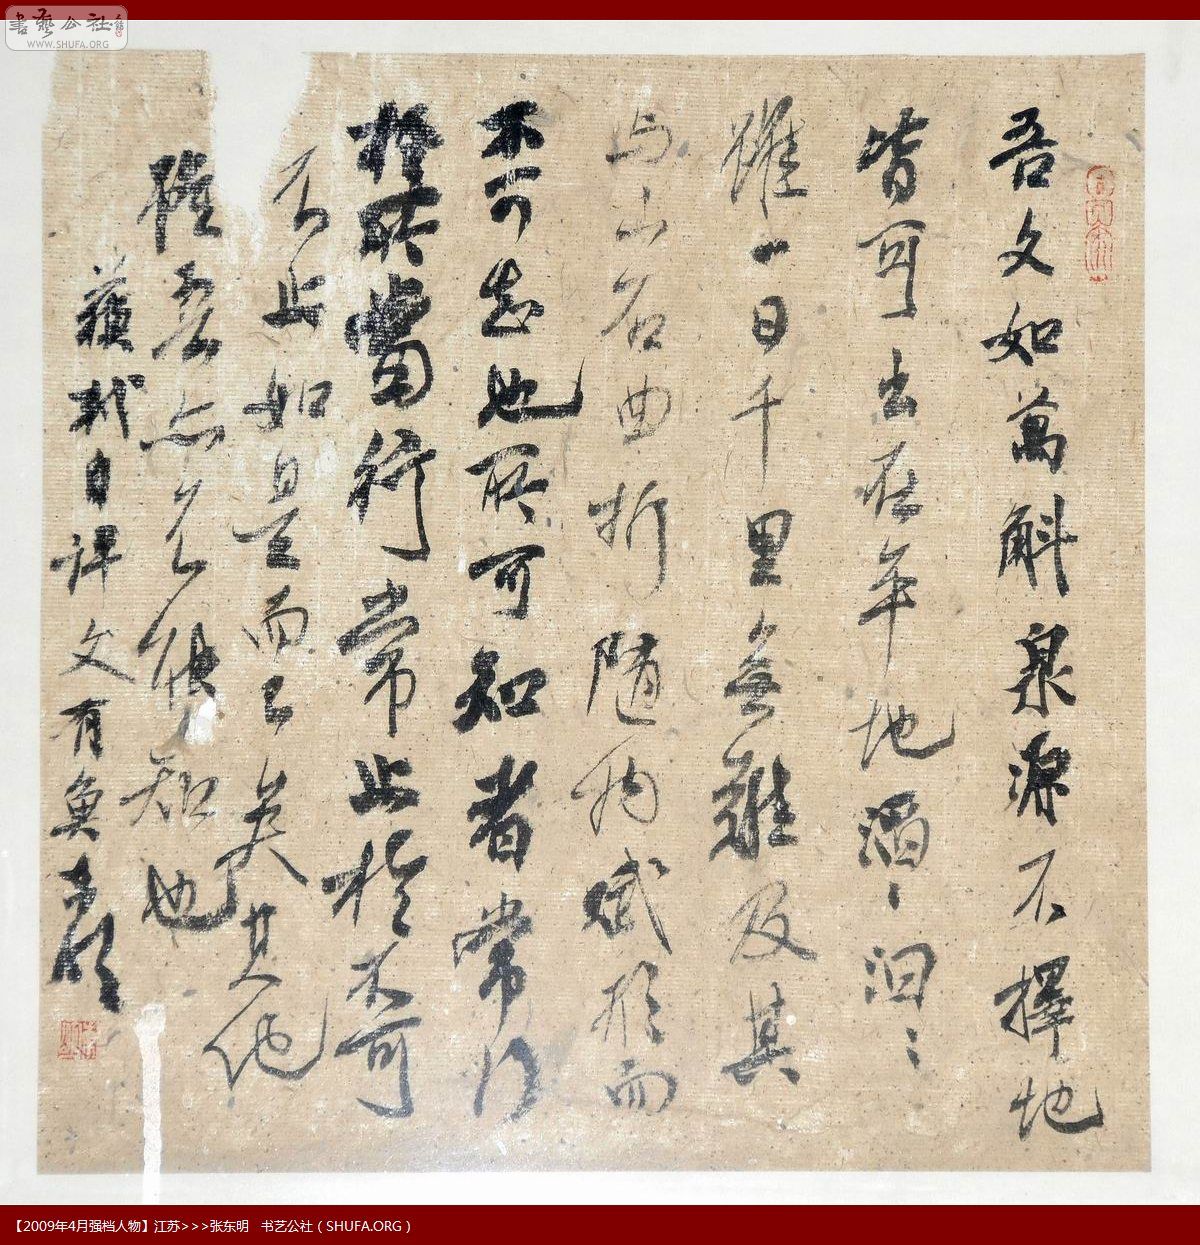 書藝公社
WWW.SHUFA.ORG
吾文如萬斛泉源不擇地
皆可出在平地滔〻汩〻
雖一日千里無難及其
与山石曲折隨物賦形而
不可知也所可知者常行
於所當行常止於不可
不止如是而已矣其他
雖吾亦不能知也
蘇軾自評文有魚东明
【2009年4月强档人物】江苏>>>张东明 书艺公社（SHUFA.ORG）